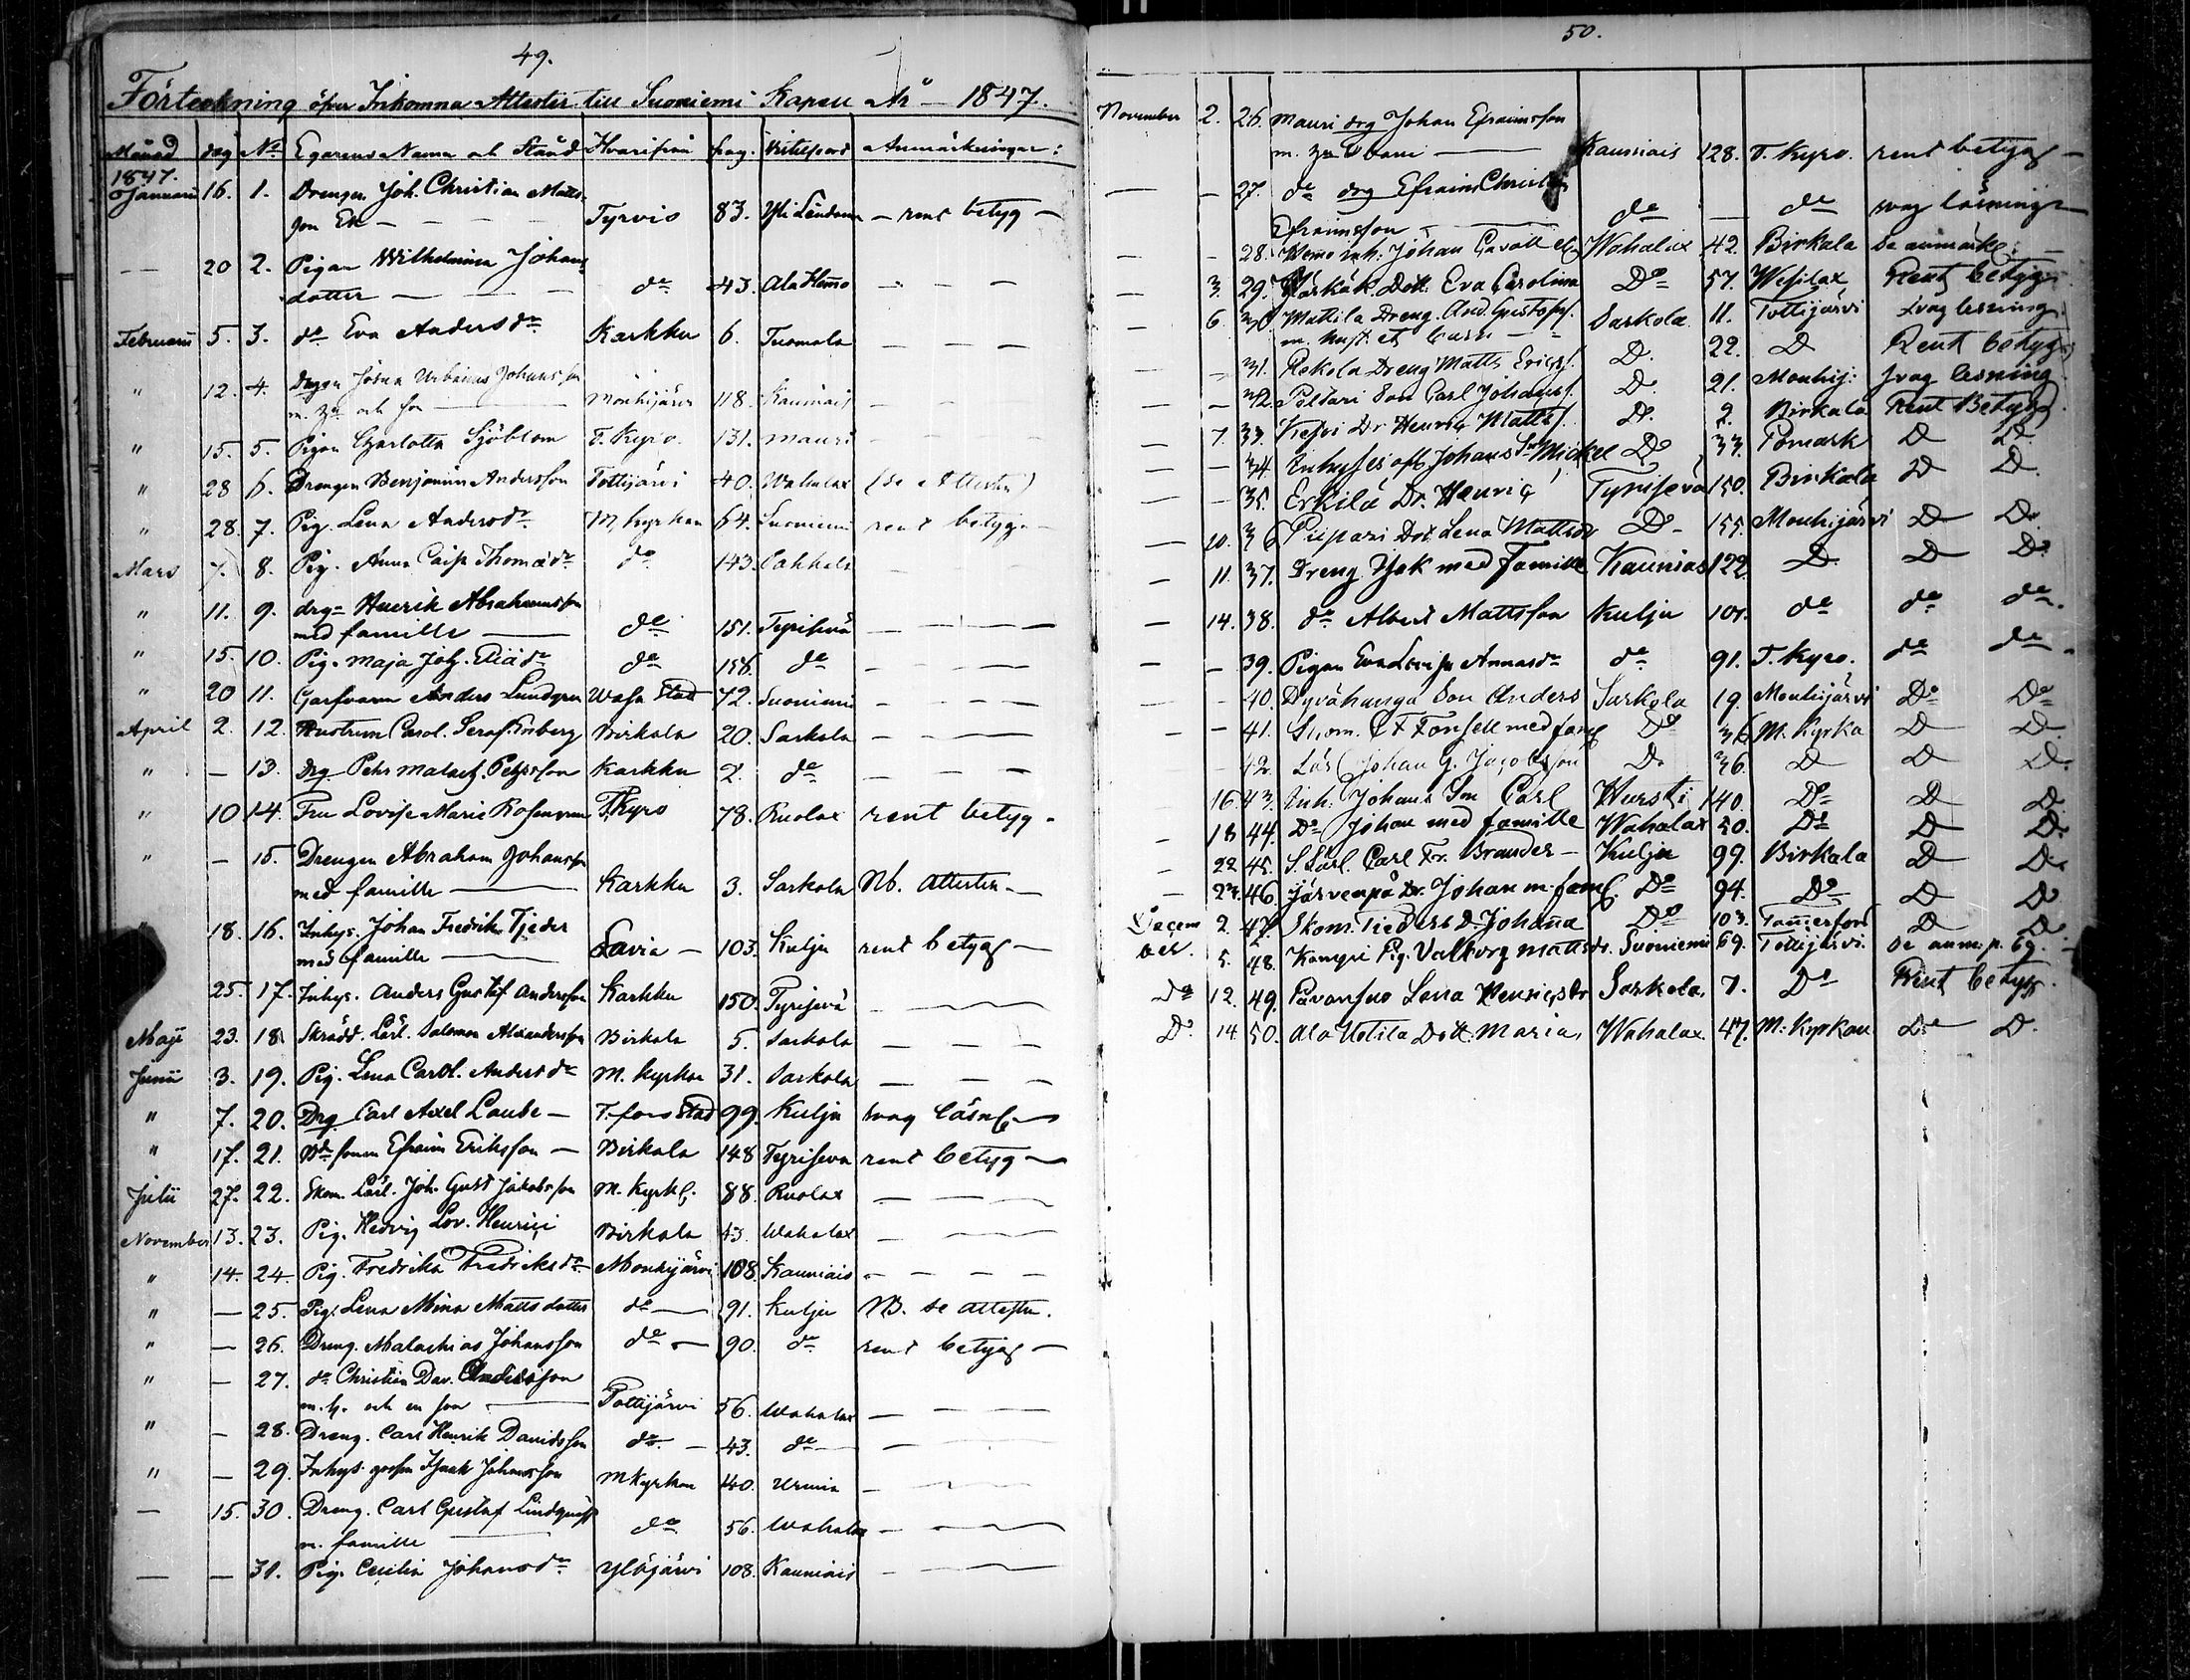 49.
Förteckning öfver Inkomna Attester till Suoniemi Kapell År - 1847.
Månad dag No Egarens Namn och Stånd Hvarifrån pag. Vistelseort Anmärkningar:
1847.
Januarii 16. 1. Drengen Joh. Christian Matts-
son Ek - Tyrvis 83. Yli - rent betyg -
20 2. Pigan Wilhelmina Johans
dotter - do 43. Ala
Februarii 5. 3. do Eva Anders dr Karkku 6. Tuomola
" 12. 4. Drgen Urbanus Johansson
m. och son Mouhijärvi 118. Kauniais
" 15. 5. Pigan Charlotta Sjöblom T. Kyro 131. Mauri
" 28 6. Drengen Benjamin Andersson Tottijärvi 40. Wahalax (se Attesten)
" 28. 7. Pig. Lena Andersdr M. kyrkan 64. Suoniemi rent betyg -
Mars 7. 8. Pig. Anna Caisa Thomædr do 143. Pakkala
" 11. 9. drg- Henrik Abrahamsson
med famille do 151. Tyrisevä
" 15. 10. Pig. Maja Joh. Eliædr do 158. do
" 20 11. Garfvaren Anders Lundgren Wasa Stad 72. Suoniemi
April 2. 12. Hustrun Carol. Seraf. Birkala 20. Sarkola
" - 13. Drg Pehr Malach. Pehrsson Karkku 2. do
" 10 14. Fru Lovisa Maria T. Kyro 78. Ruolax rent betyg -
" - 15. Drengen Abraham Johansson
med famille Karkku 3. Sarkola Nb. Attesten -
" 18. 16. Inhys. Johan Fredrik Tjeder
med famille Lavia - 103. Kulju rent betyg -
25. 17. Inhys. Anders Gustaf Andersson Karkku 150. Tyrisevä
Maji 23. 18 Skrädd. Lärl. Salomon Alexandersson Birkala 5. Sarkola
Junii 3. 19. Pig. Lena Carol. Anders dr M. kyrkan 31. Sarkola
" 7. 20. Drg Carl Axel Laube - T. fors Stad 99. Kulju svag
" 17. 21. Bde sonen Efraim Eriksson - Birkala 148 Tyriseva rent betyg -
Julii 27. 22. Skom. Lärl. Joh. Gust Jakobsson M. Kyrk. 88. Ruolax
November 13. 23. Pig. Hedvig Lov. Henrici Birkala 43. Wahalax
" 14. 24. Pig. Fredrika Fredriksdr Mouhijärvi 108. Kauniais
" - 25. Pig. Lena Mina Mattsdotter do 91. Kulju NB. se attesten.
" - 26. Dreng. Malachias Johansson do 90. do rent betyg -
" - 27. do Christian Dav. Andersson
m. h. och en son Tottijärvi 56. Wahalax
" - 28. Dreng. Carl Henrik Davidsson do - 43. do
" - 29. Inhys. gossen Isaak Johansson M kyrkan 40. Urmia
- 15. 30. Dreng. Carl Gustaf Lindqvist
m. famille do 56. Wahalax
- - 31. Pig. Cecilia Johansdr Ylöjärvi 108. Kauniais
50.
November 2. 26. Mauri drg Johan Efraimsson
m. Kauniais 128. T. Kyro. rent betyg -
- - 27. do drg Efraim Christian
Efraimsson - do - do svag läsning -
- - 28. Inh: Johan Wahalax 42. Birkala se anmärk:
- 3. 29. Dott. Eva Carolina Do 57. Wesilax Rent betyg
- 6. 30. Mattila Dreng. And. Gustafss.
m. hust. et barn - Sarkola 11. Tottijärvi svag lesning
- - 31. Rekola Dreng Matts Ericss. D. 22. D Rent betyg
- - 32. Son Carl Johanss. D. 21. Mouhij: svag lesning
- 7. 33. Dr Henric Mattss. D. 2. Birkala Rent Betyg
- - 34. Inhyses oft Johans Sn Mickel Do 33. Pomark D D.
- - 35. Erkilä Dr. Henric Tyrisevä 150. Birkala D D.
- 10. 36 Piipari Dot. Lena Mattsdr Do - 155. Mouhijärvi D Do
- 11. 37. Dreng Isak med famille Kaunias 122 D D D.
- 14. 38. do Albert Mattsson Kulju 101. do do do
- - 39. Pigan Eva Lovisa Annasdr do 91. T. Kyro. do do
- - 40. Son Anders Sarkola 19. Mouhijärvi Do Do
- - 41. Skom. C F Fonsell med fam. Do 36 M. Kyrka D D.
42. Lärl Johan G. Jacobsson D. 36. D D D.
16 43. Inh. Johans Son Carl Hursti 140. Do D D
- 18 44. Do Johan med famille Wahalax 50. Do D D.
- 22 45. S. Lärl. Carl Fr. Brander - Kulju 99. Birkala D D.
- 23. 46. Järvenpä Dr. Johan m. fam. Do 94. Do D D
Decem 2. 47. Skom. Tieders Dr. Johanna Do 103. Tammerfors D D
ber. 5. 48. Pig. Valborg Mattsdr. Suoniemi 69. Tottijärvi. se anm: p. 69.
Do 12. 49. Lena Henricsdr Sarkola. 7. Do Rent betyg.
D. 14 50. Ala Uotila Dott. Maria, Wahalax. 47. M: Kyrkan Do D.